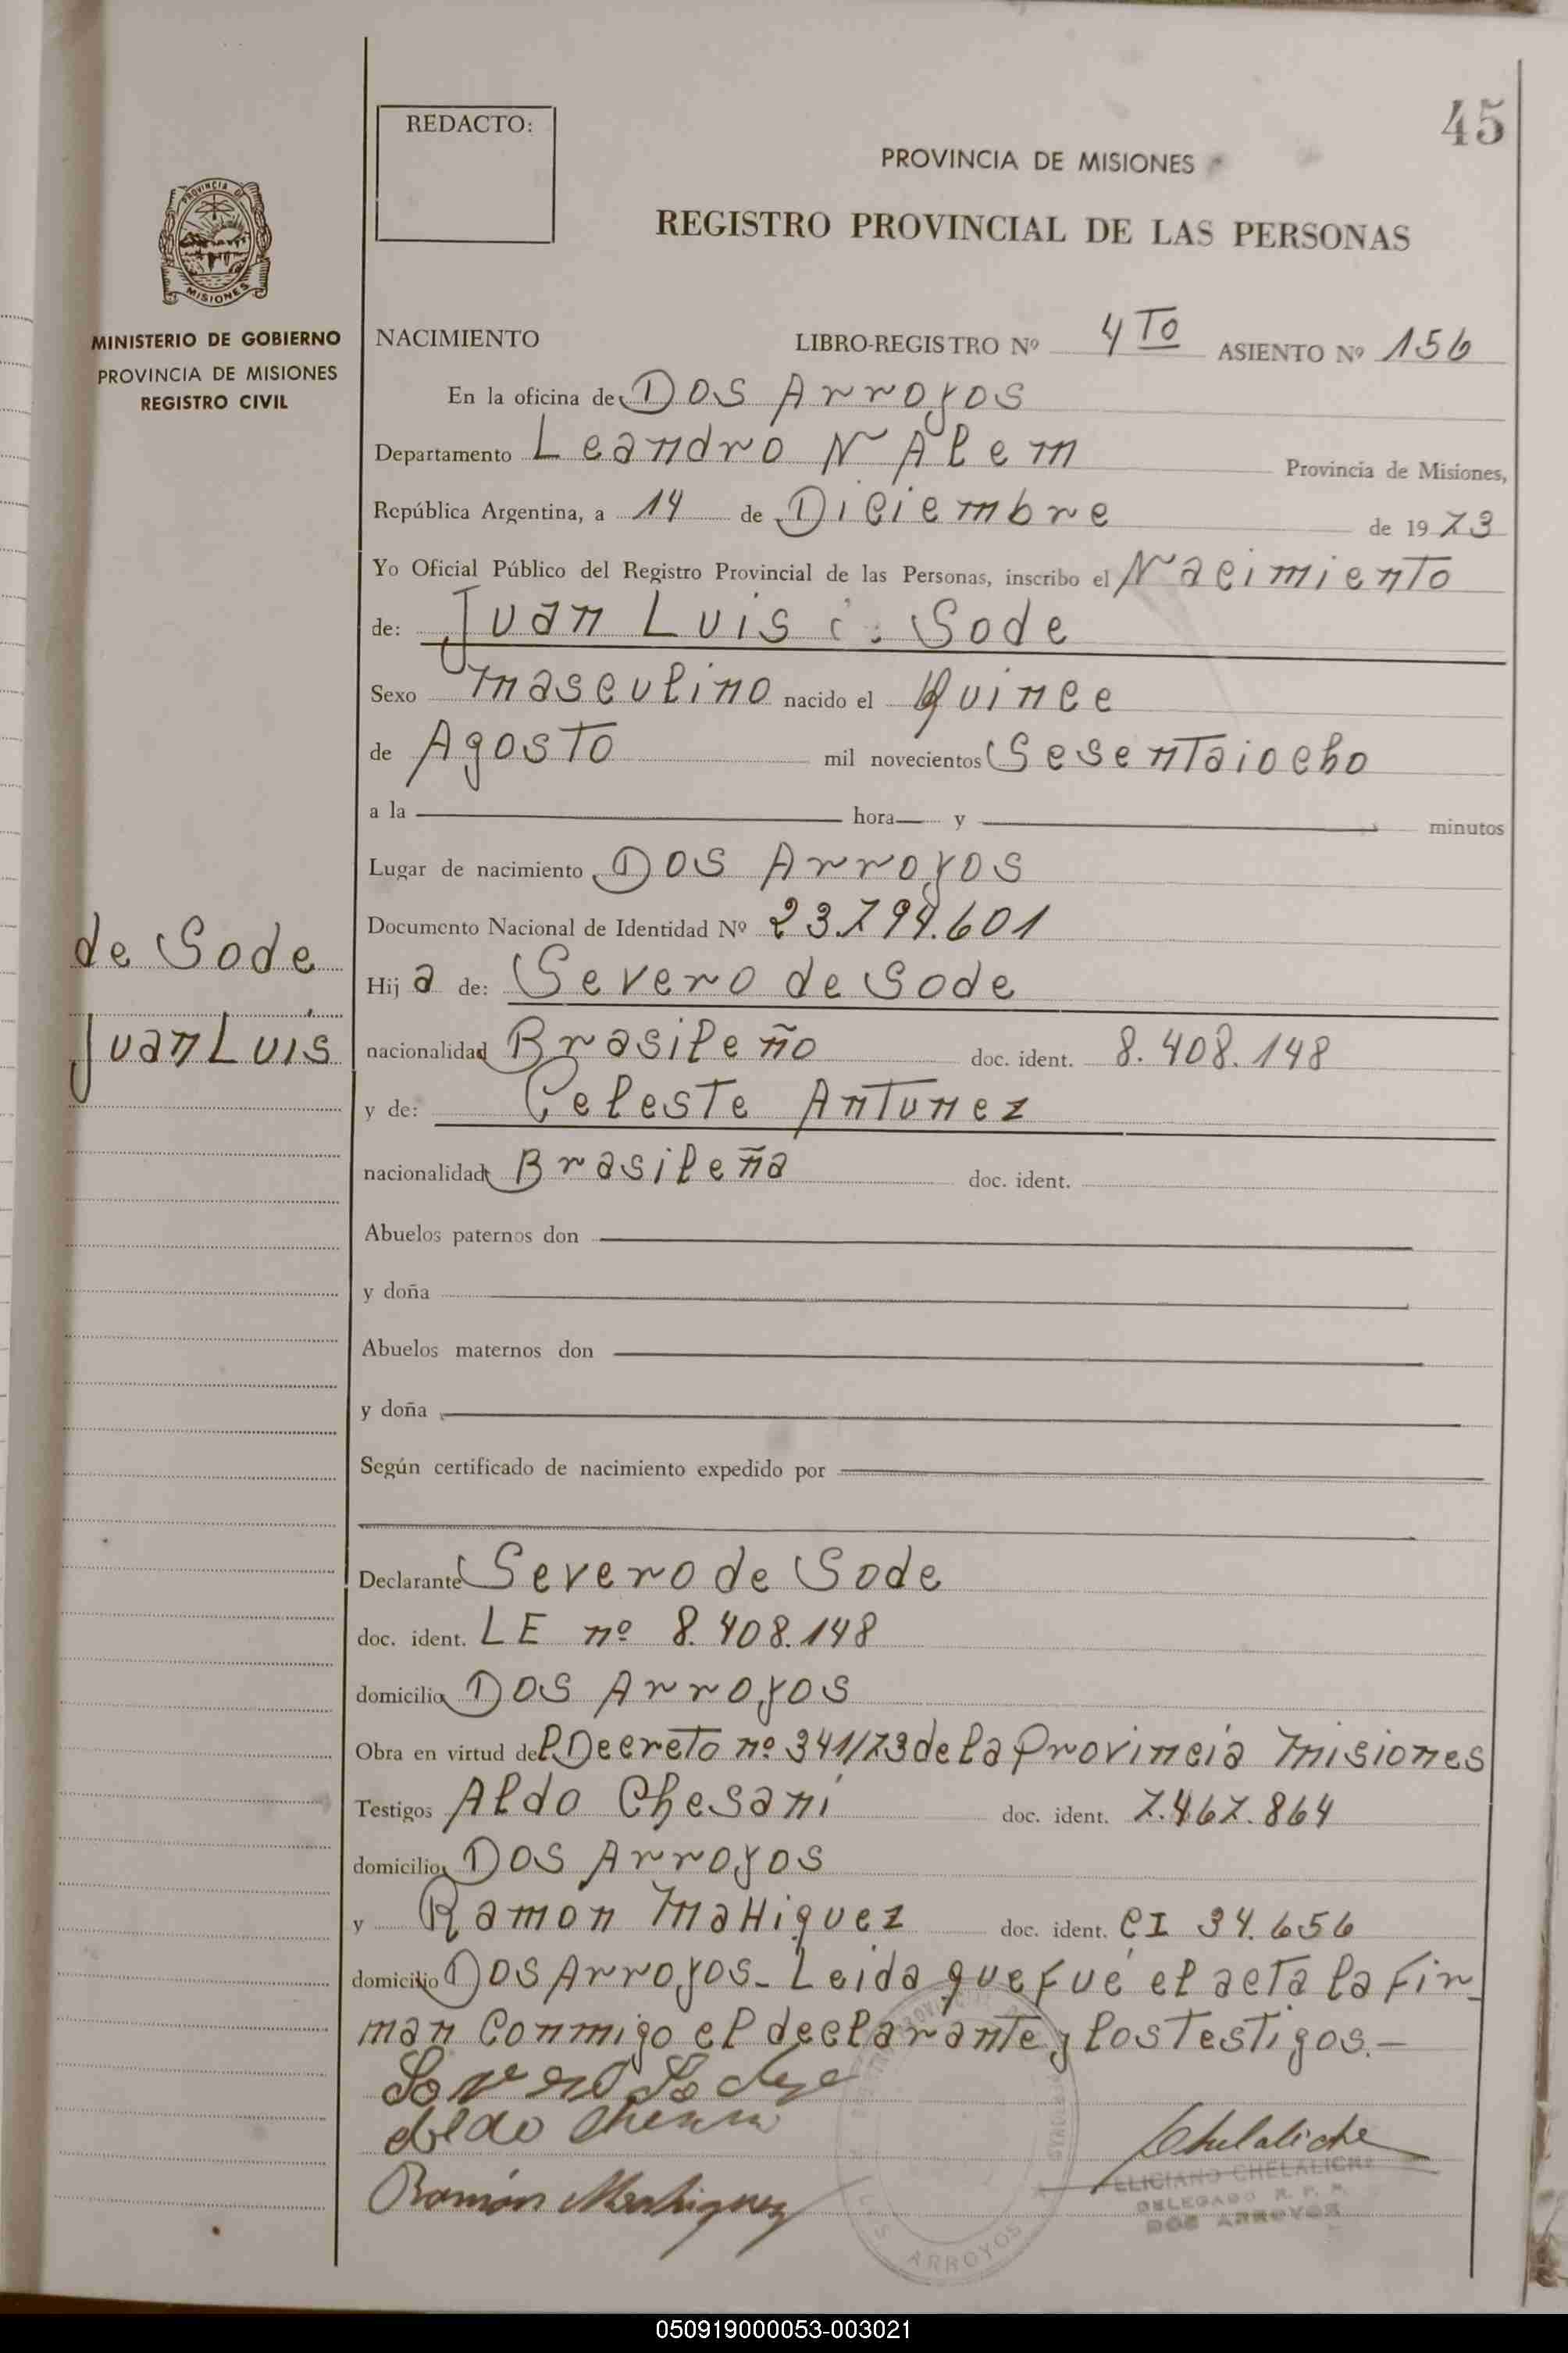 45
REDACTO:
PROVINCIA DE MISIONES
REGISTRO PROVINCIAL DE LAS PERSONAS
PROVINCIA DE MISIONES
MINISTERIO DE GOBIERNO
PROVINCIA DE MISIONES
REGISTRO CIVIL
NACIMIENTO LIBRO-REGISTRO Nº 4 To ASIENTO Nº 156
En la oficina de Dos Arroyos
Departamento Leandro N Alem Provincia de Misiones,
República Argentina, a 14 de Diciembre de 1973
Yo Oficial Público del Registro Provincial de las Personas, inscribo el Nacimiento
de: Juan Luis : Sode
Sexo masculino nacido el Quince
de Agosto mil novecientos Sesentaiocho
a la hora y minutos
Lugar de nacimiento Dos Arroyos
Documento Nacional de Identidad Nº 23.794.601
de Sode
Juan Luis
Hij a de: Severo de Sode
nacionalidad Brasileño doc. ident. 8.408.148
y de: Celeste Antunez
nacionalidad Brasileña doc. ident.
Abuelos paternos don
y doña
Abuelos maternos don
y doña
Según certificado de nacimiento expedido por
Declarante Severo de Sode
doc. ident. LE nº 8.408.148
domicilio Dos Arroyos
Obra en virtud del Decreto nº 341/73 de la Provincia Misiones
Testigos Aldo Chesani doc. ident. 7.467.864
domicilio Dos Arroyos
y Ramón Mahiquez doc. ident. CI 34.656
domicilio Dos Arroyos_ Leida que fué el acta la fir_
man conmigo el declarante y los testigos.-
Aldo
Ramón Mahiquez
Chelaliche
FELICIANO CHELALICHE
DELEGADO R. P. P.
DOS ARROYOS
DOS ARROYOS
050919000053-003021